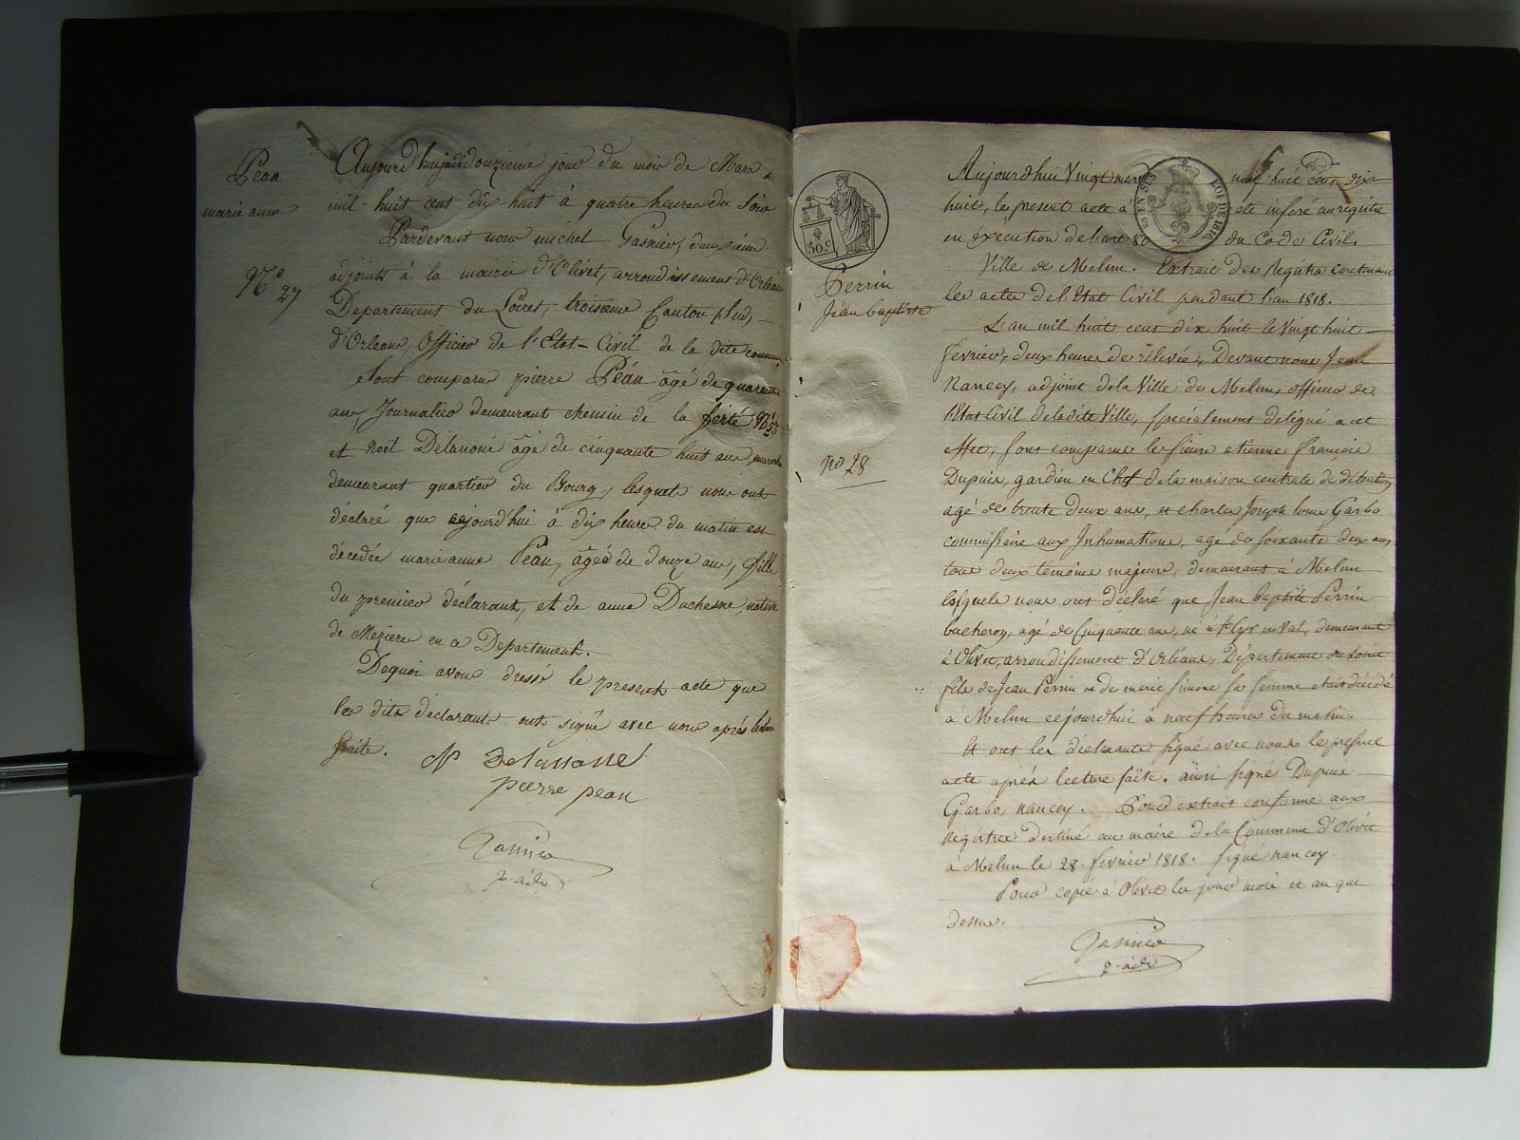 Péan
marie anne
N° 27
Aujourd'hui douzieme jour du mois de Mars
mil huit cent dix huit à quatre heures du soir
Pardevant nous michel Gasnier, deuxieme
adjoint à la mairie d'Olivet, arrondissement d'Orléans
Departement du Loiret, troisieme Canton Sud,
d'Orleans, Officier de l'Etat-Civil de la dite commune
Sont comparu pierre Péan âgé de quarente
ans, Journalier demeurant chemin de la ferté
et Noël Délanoue âgé de cinquante huit ans
demeurant quartier du Bourg, lesquels nous ont
déclaré que cejourd'hui à dix heures du matin est
décédée marie anne Péan, âgée de douze ans, fille
du premier déclarant, et de anne Duchesne, native
de Mezieres en ce Departement.
Dequoi avons dressé le present acte que
les dits déclarants ont signé avec nous après lecture
faite.
pierre pean
Gasnier
2e adj
50 c
Perrin
Jean baptiste
n° 28
Aujourd'hui Vingt mars mil huit cent dix
huit, le present acte a été inséré au registre
en éxécution de l'art 80 du Code Civil.
Ville de Melun. Extrait des Registres contenant
les actes de l'Etat Civil pendant l'an 1818.
L'an mil huit cent dix huit le Vingt huit
fevrier, deux heures de rélevée, Devant nous Jean
Nancey, adjoint de la Ville de Melun, officier de
l'Etat Civil de la dite Ville, spécialement délégué a cet
effet, sont comparus les sieurs etienne françois
Dupuis, gardien en Chef de la maison centrale de détention,
agé de trente deux ans, et charles Joseph Come Garbo
commissaire aux Inhumations, agé de soixante deux ans,
tous deux témoins majeurs, demeurant à Melun
lesquels nous ont déclaré que Jean baptiste Perrin
vacheron, agé de Cinquante ans, né à St Cyr en Val, demeurant
à Olivet, arrondissement d'Orléans, Département du Loiret
fils de Jean Perrin et de marie simone sa femme etait décédé
a Melun cejourdhui à neuf heures du matin.
Et ont les déclarants signé avec nous le présent
acte après lecture faite. ainsi signé Dupuis
Garbo, nancey. Pour extrait conforme aux
Registres destiné au maire de la Commune d'Olivet
à Melun le 28 fevrier 1818. signé nancey
Pour copie à Olivet les jour mois et an que
dessus.
Gasnier
2e adj